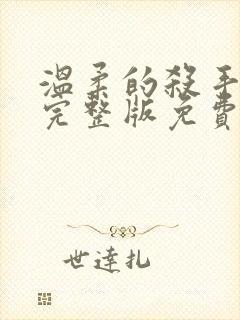 温柔的殺手
完整版免費
世達扎